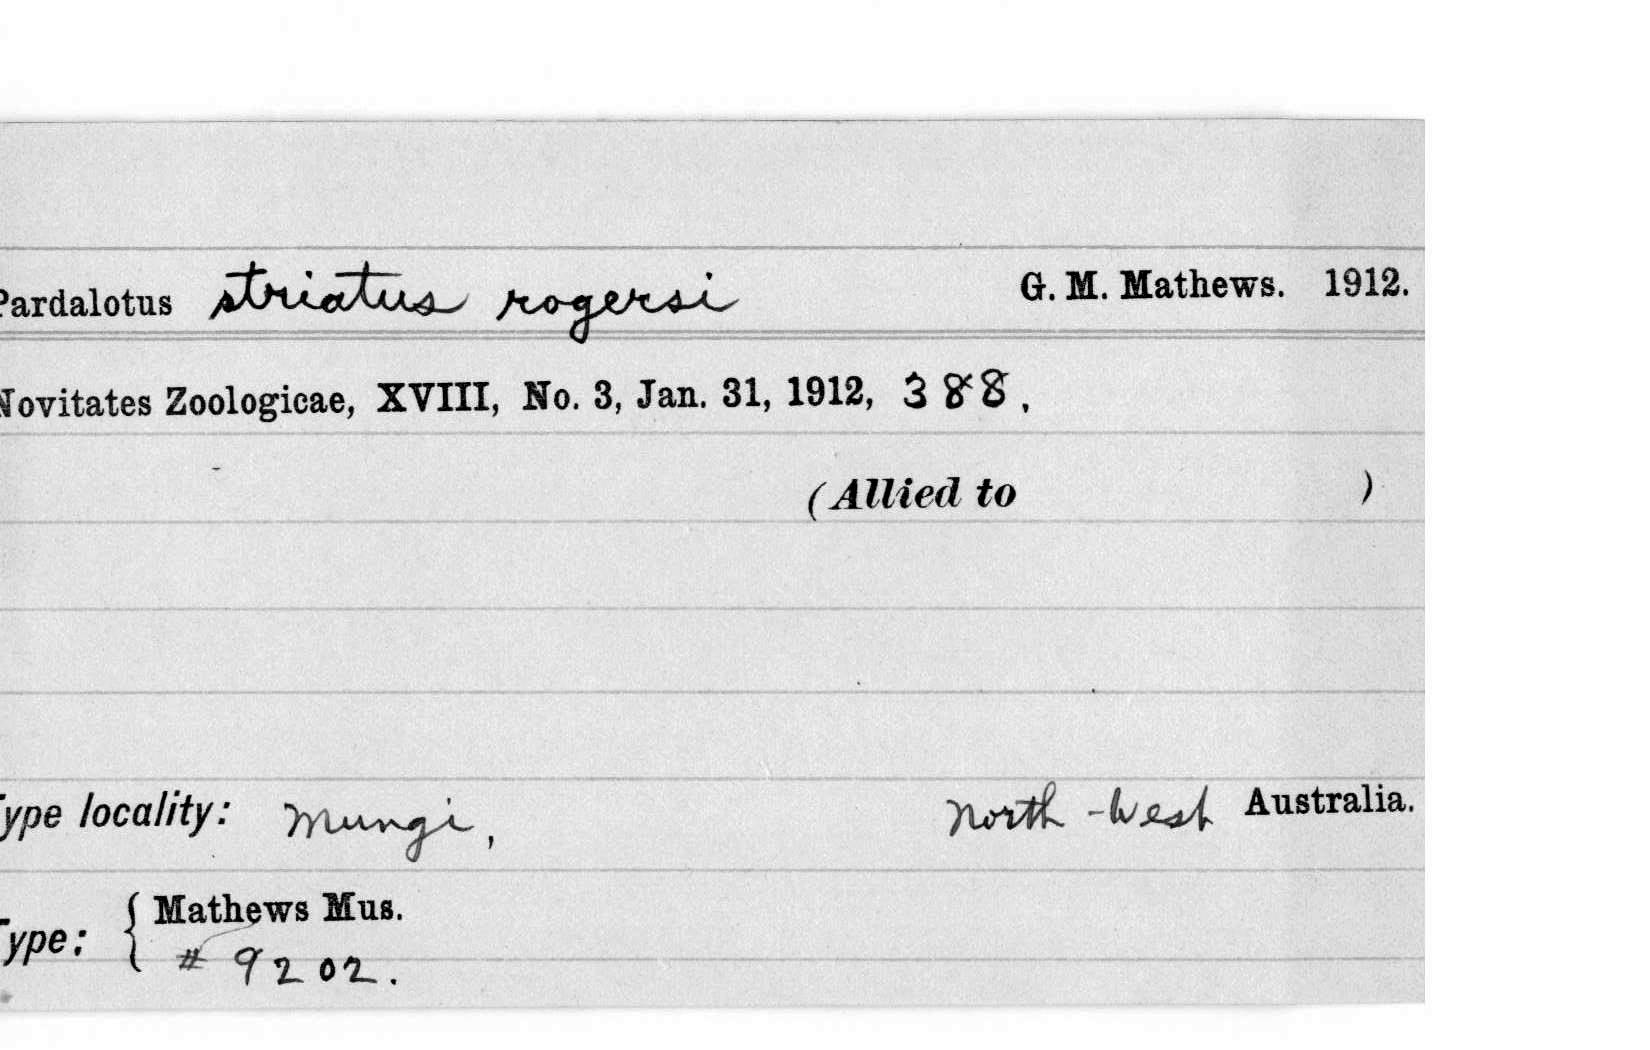 Pardalotus striatus rogersi G. M. Mathews. 1912.
Novitates Zoologicae, XVIII, No. 3, Jan. 31, 1912, 388.
(Allied to )
Type locality: Mungi, North-West Australia.
Type: { Mathews Mus.
# 9202.